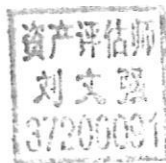 资产评估师
刘文强
37200091